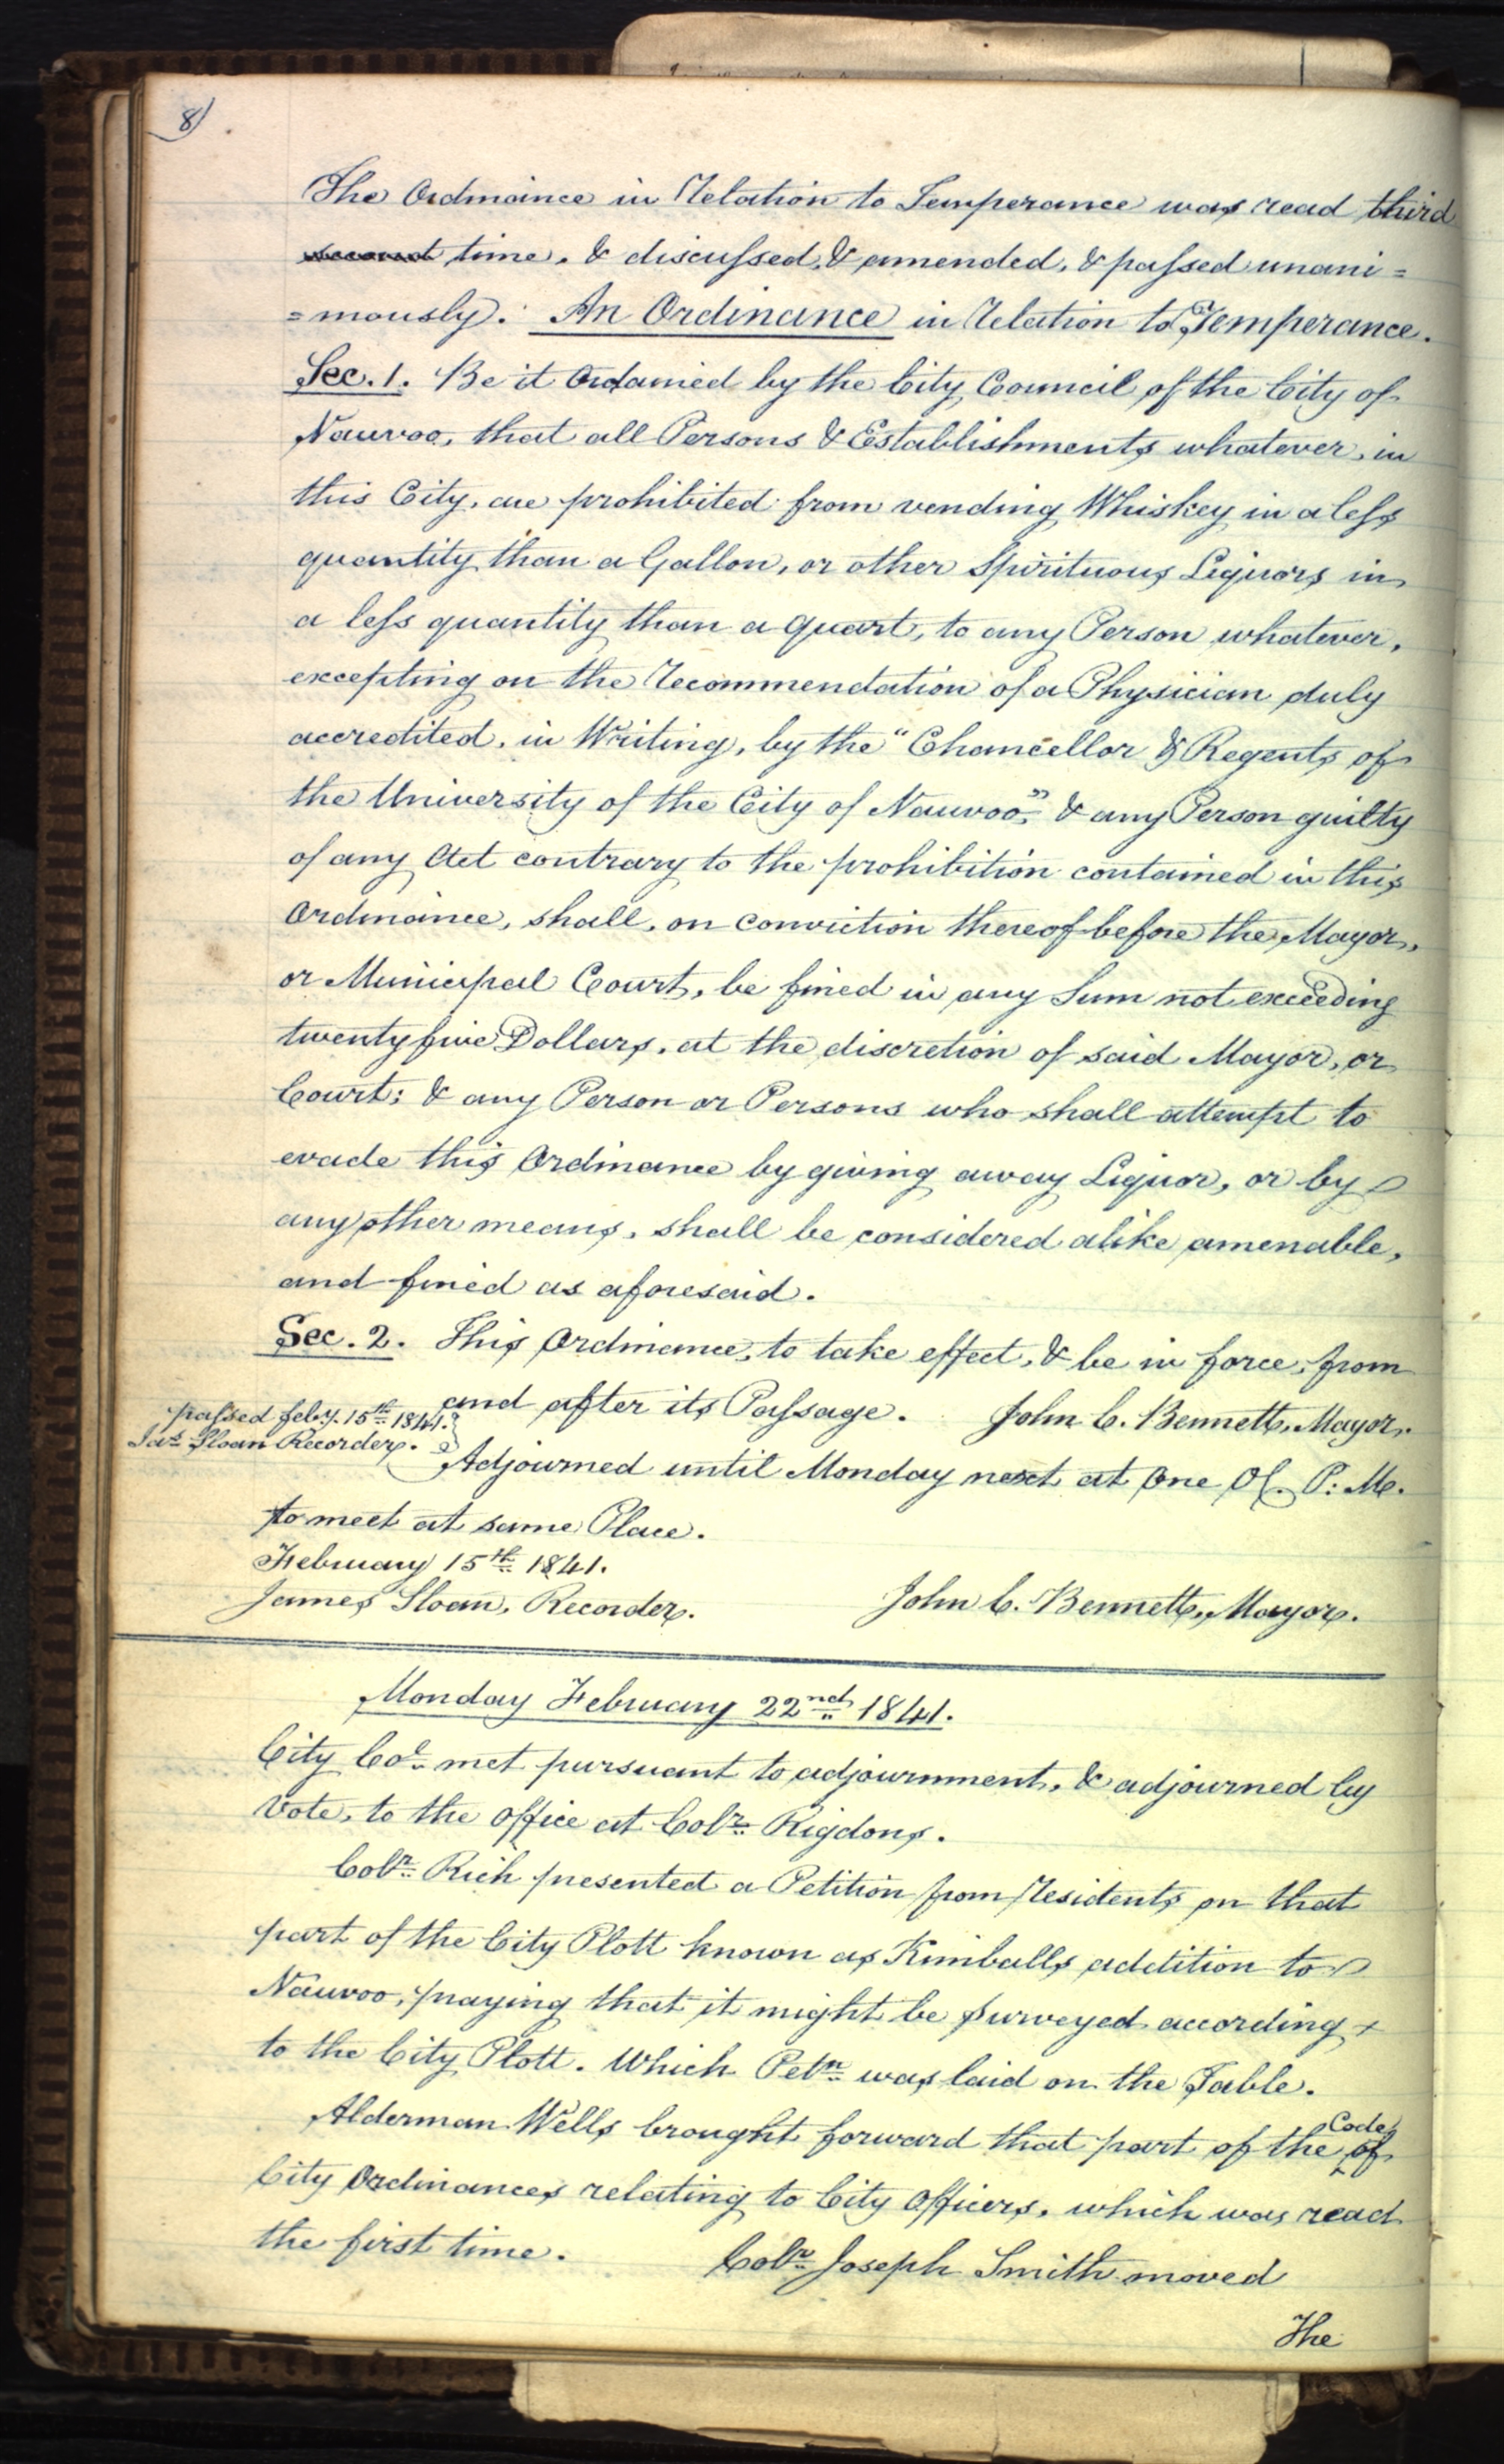 8)
The Ordinance in Relation to Temperance was read third
second time, & discussed, & amended, & passed unani=
=mously. An Ordinance in Relation to Temperance.
Sec. 1. Be it Ordained by the City Council of the City of
Nauvoo, that all Persons & Establishments whatever, in
this City, are prohibited from vending Whiskey in a less
quantity than a Gallon, or other Spirituous Liquors in
a less quantity than a quart, to any Person whatever,
excepting on the Recommendation of a Physician duly
accredited, in Writing, by the "Chancellor & Regents of
the University of the City of Nauvoo", & any Person guilty
of any Act contrary to the prohibition contained in this
Ordinance, shall, on conviction thereof before the Mayor,
or Municipal Court, be fined in any Sum not exceeding
twenty five Dollars, at the discretion of said Mayor, or
Court; & any Person or Persons who shall attempt to
evade this Ordinance by giving away Liquor, or by
any other means, shall be considered alike amenable,
and fined as aforesaid.
Sec. 2. This Ordinance, to take effect, & be in force, from
and after its Passage. John C. Bennett, Mayor.
passed feby. 15th 1841.
Jas Sloan Recorder.
Adjourned until Monday next at One OC. P: M.
to meet at same Place.
February 15th 1841.
James Sloan, Recorder. John C. Bennett, Mayor.
Monday February 22nd 1841.
City Col met pursuant to adjournment, & adjourned by
Vote, to the Office at Colr Rigdons.
Colr Rich presented a Petition from Residents on that
part of the City Plott known as Kimballs addition to
Nauvoo, praying that it might be surveyed according
to the City Plott. Which Petn was laid on the Table.
Alderman Wells brought forward that part of the Code of
City Ordinances relating to City Officers, which was read
the first time. Colr Joseph Smith moved
The